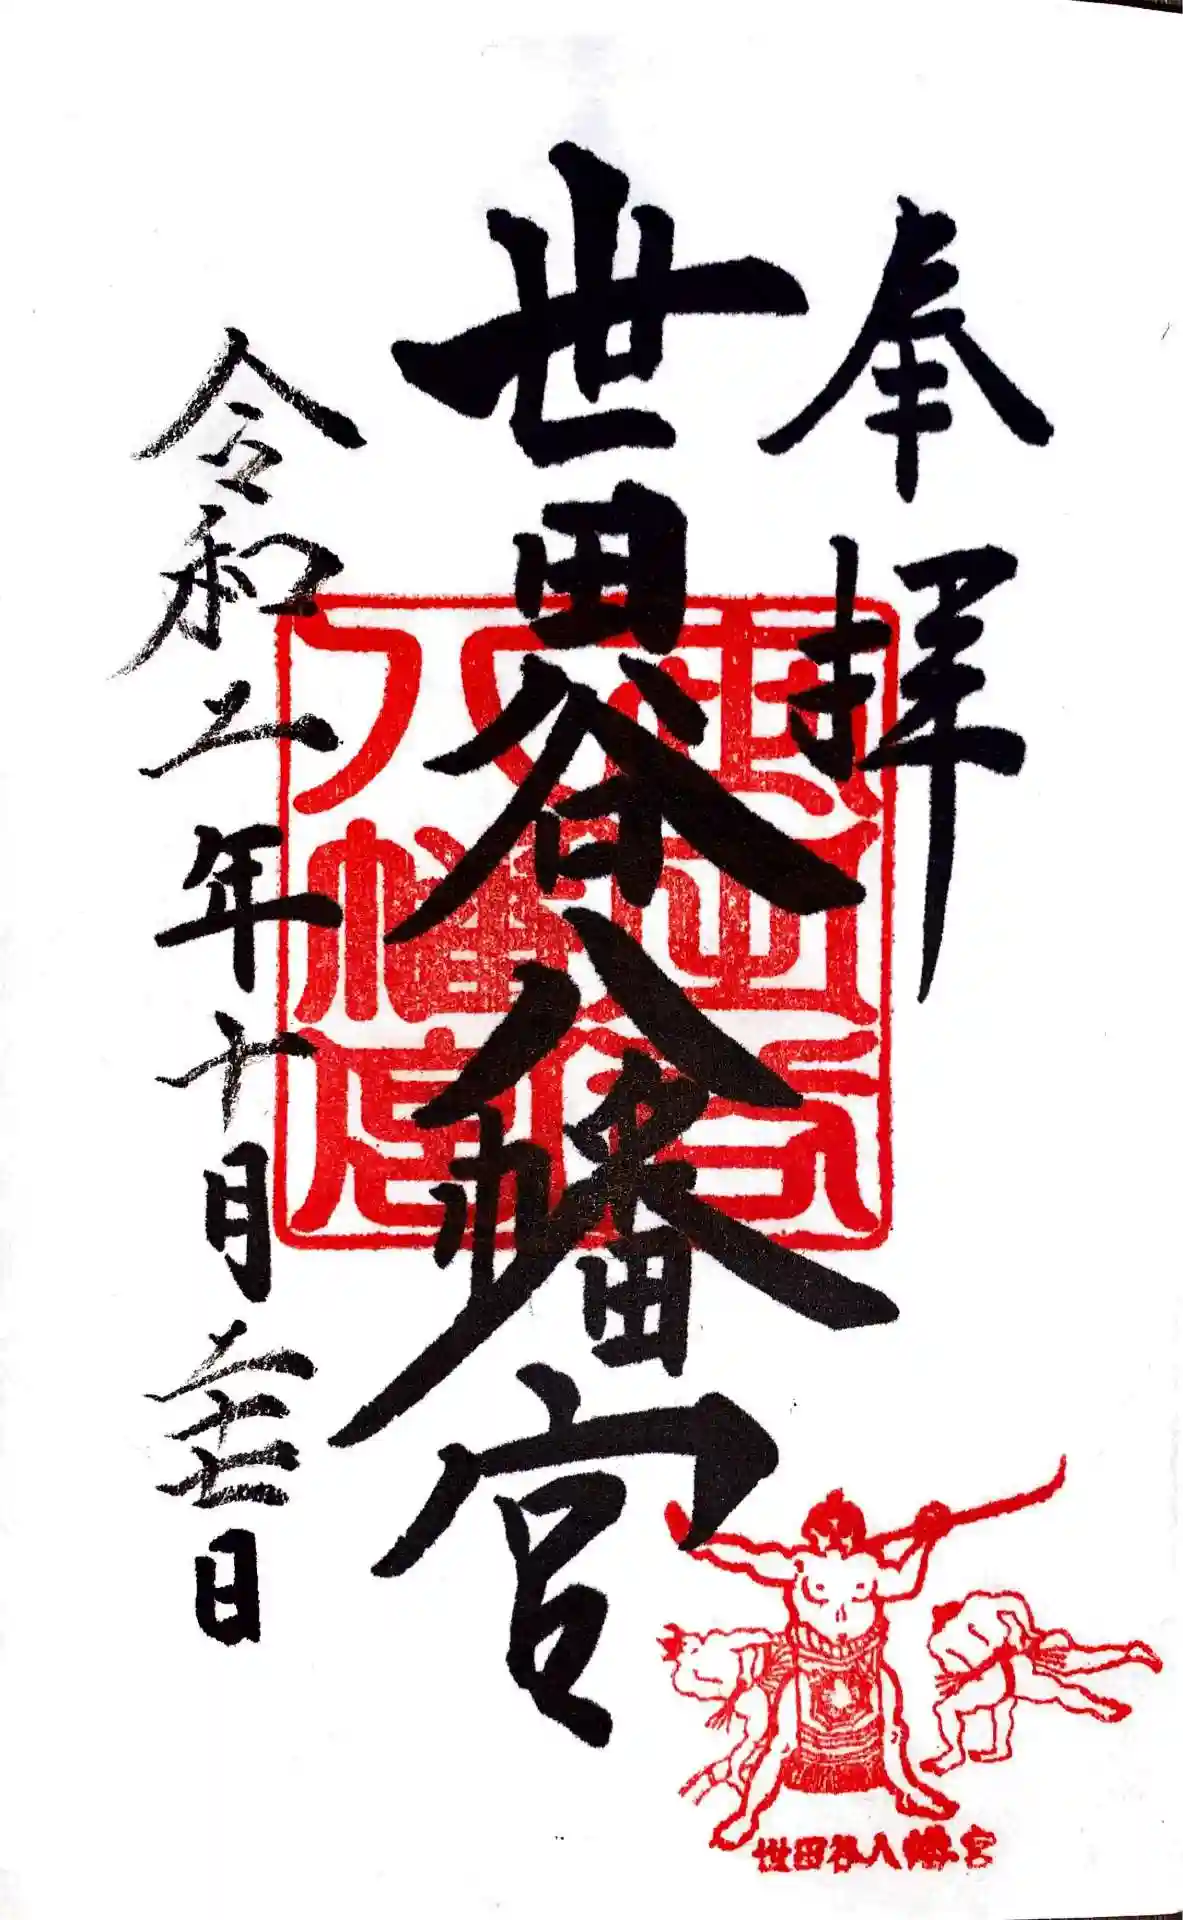 奉拝
世田谷八幡宮
令和二年十月二十七日
世田谷
八幡宮
世田谷八幡宮